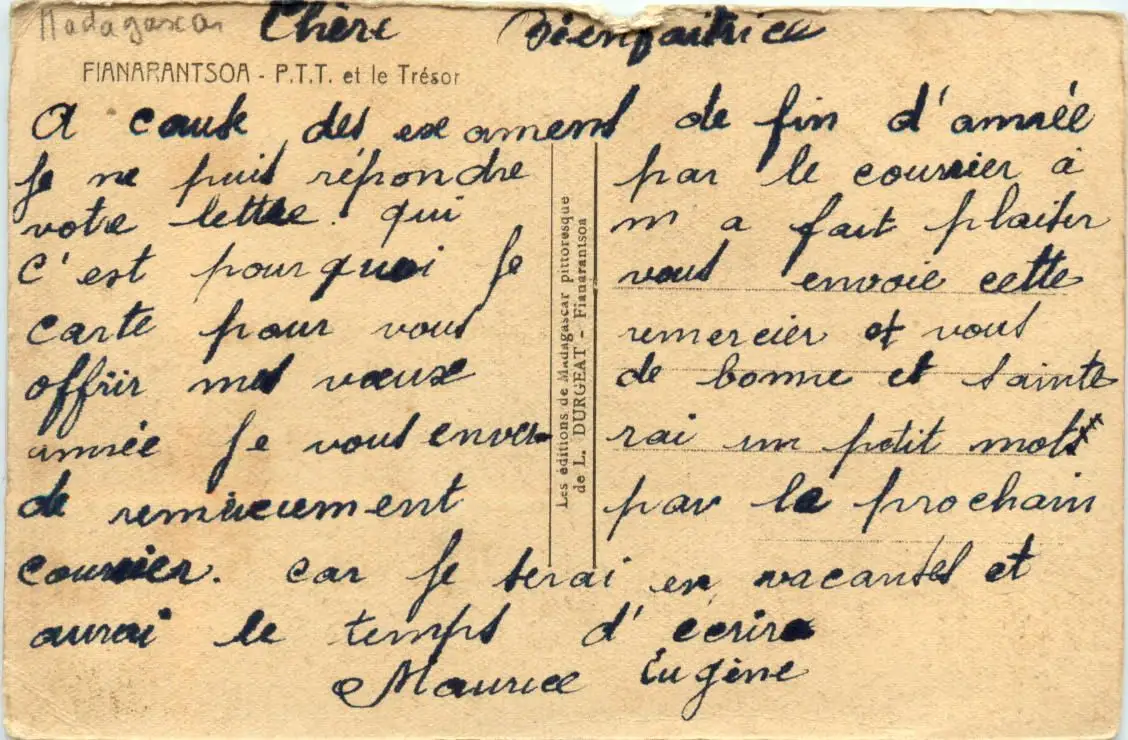 Madagascar
Chère Bienfaitrice
FIANARANTSOA - P.T.T. et le Trésor
A cause des examens de fin d'année
Je ne puis répondre par le courrier à
votre lettre. qui m'a fait plaisir
C'est pourquoi Je vous envoie cette
carte pour vous remercier et vous
offrir mes vœux de bonne et sainte
année Je vous enver- rai un petit mots
de remerciement par le prochain
courrier. car Je serai en vacances et
aurai le temps d'écrire
Maurice Eugène
Les éditions de Madagascar pittoresque
de L. DURGEAT - Fianarantsoa